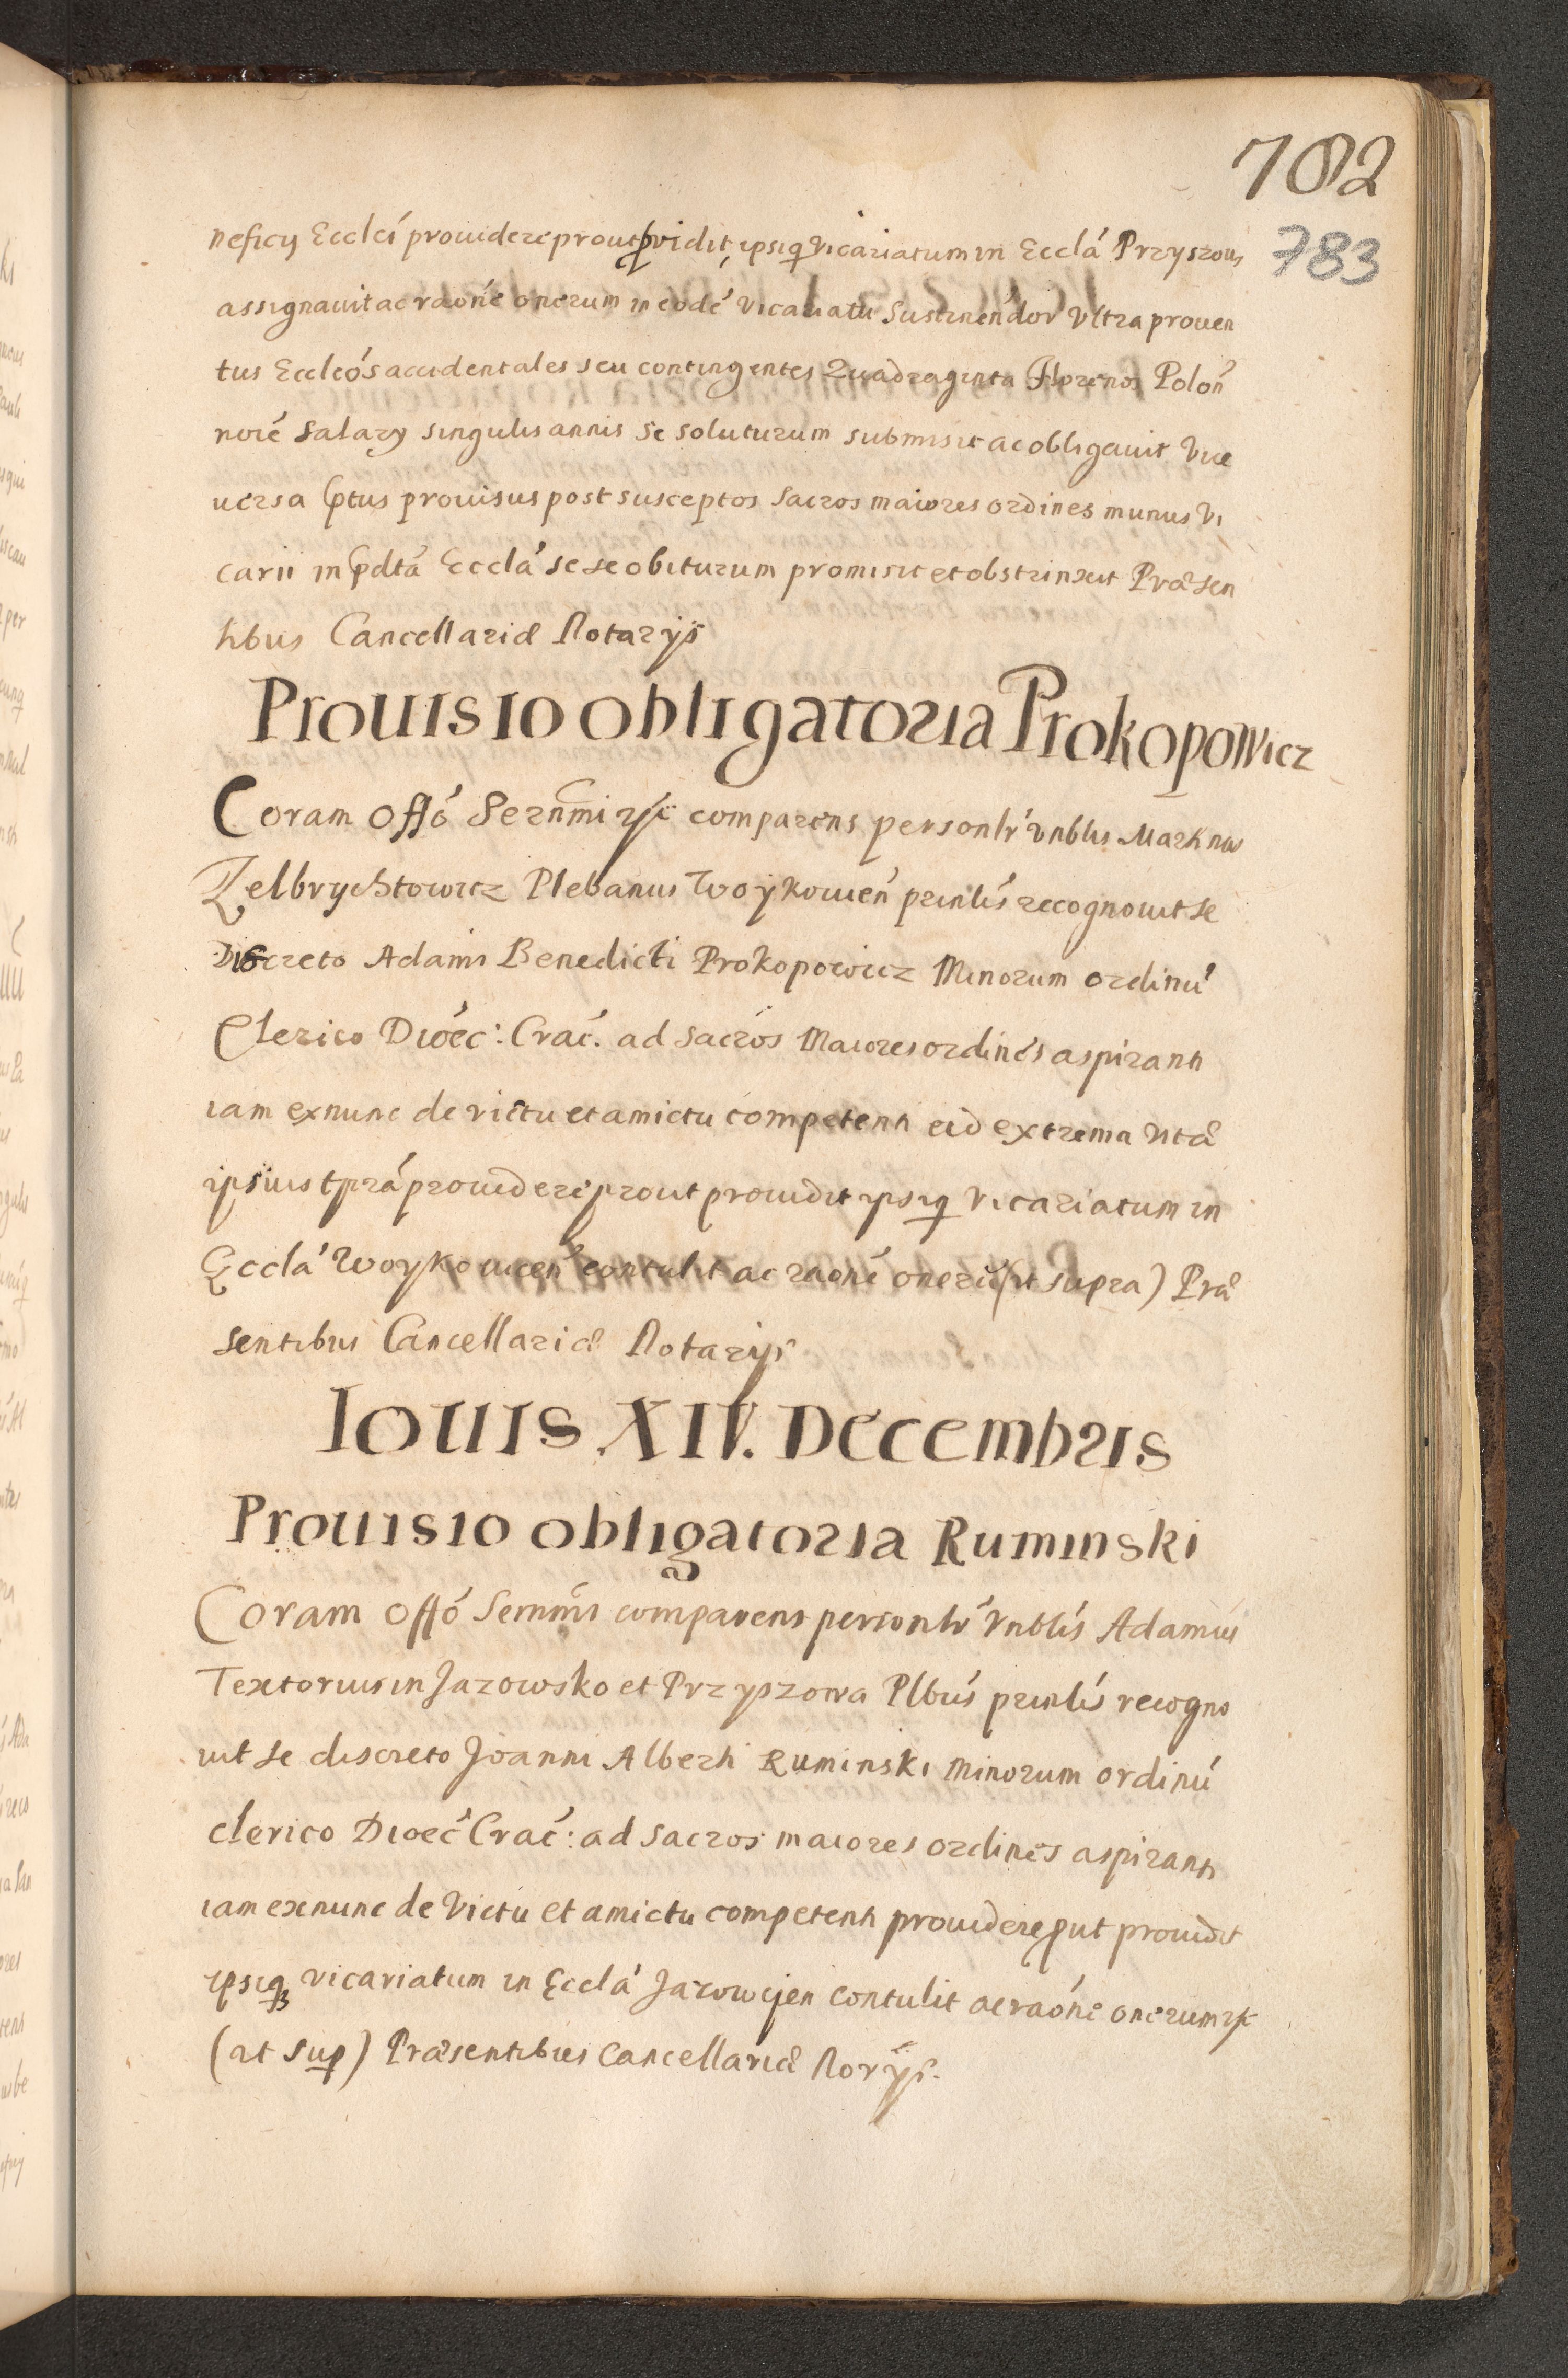 702
783
neficij Ecclci prouidere prout prouidit, ipsiq Vicariatum in Eccla Przyszouˢ
assignauit ac raone onerum in eode vicariatu Sustinendor Vltra prouen
tus Eccleos accidentales seu contingentes Quadraginta Florenos Polon
noie Salarij singulis annis se soluturum submisit ac obligauit Vice
uersa ptus prouisus post susceptos Sacros maiores ordines munus Vi
carii in pdta Eccla se se obiturum promisit et obstrinxit Præsen
tibus Cancellariæ Notarijs
Prouisio obligatoria Prokopowicz
Coram Offo Sernmi comparens personlr Vnblis Markus
Zelbrychtowicz Plebanus Woykouien prinlis recognouit se
Discreto Adamo Benedicti Prokopowicz Minorum ordinu
Clerico Dioec: Crac. ad Sacros Maiores ordines aspiranti
iam exnunc de victu et amictu competenti ad extrema vitæ
ipsius tpra prouidere prout prouidit ipsiq Vicariatum in
Eccla Woykouicen contulit ac raone oneru (vt supra) Præ
sentibus Cancellariæ Notarijs
Iouis XIV. Decembris
Prouisio obligatoria Ruminski
Coram Offo Sernmi comparens personlr Vnblis Adamus
Textorius in Jazowsko et Przyszowa Plbus prinlis recogno
uit se discreto Joanni Alberti Ruminski Minorum ordinu
clerico Dioec Crac: ad Sacros maiores ordines aspiranti
iam exnunc de Victu et amictu competenti prouidere put prouidit
ipsiq vicariatum in Eccla Jazowcien contulit ac raone onerum
(vt sup) Præsentibus Cancellariæ Norijs.